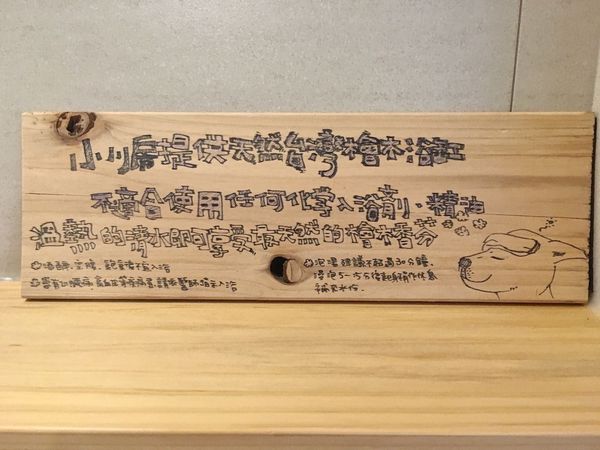 小三房提供天然台灣檜木浴缸
不適合使用任何化學入浴劑、精油
溫熱的清水即可享受天然的檜木香芬
酒醉、空腹、飽食後不宜入浴
患有心臟病、高血壓等病者,請依醫師指示入浴
泡湯建議不超過30分鐘
浸泡5-10分後起身稍作休息
補充水份。